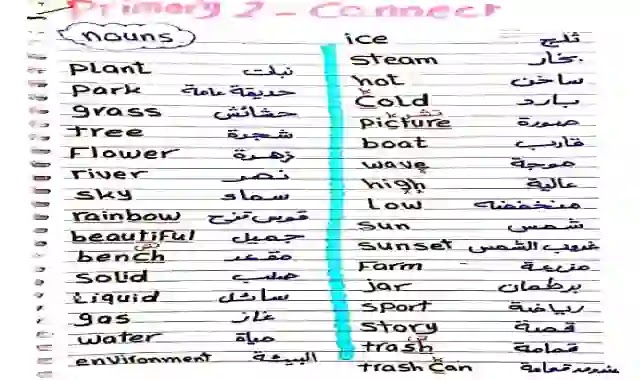 Primary 2 - Connect
nouns
plant نبات
park حديقة عامة
grass حشائش
tree شجرة
Flower زهرة
river نهر
sky سماء
rainbow قوس قزح
beautiful جميل
bench مقعد
solid صلب
Liquid سائل
gas غاز
water مياة
environment البيئة
ice ثلج
steam بخار
hot ساخن
cold بارد
picture صورة
boat قارب
wave موجة
high عالية
Low منخفضه
sun شمس
sunset غروب الشمس
Farm مزرعة
jar برطمان
sport رياضة
story قصة
trash قمامة
trash can صندوق قمامة